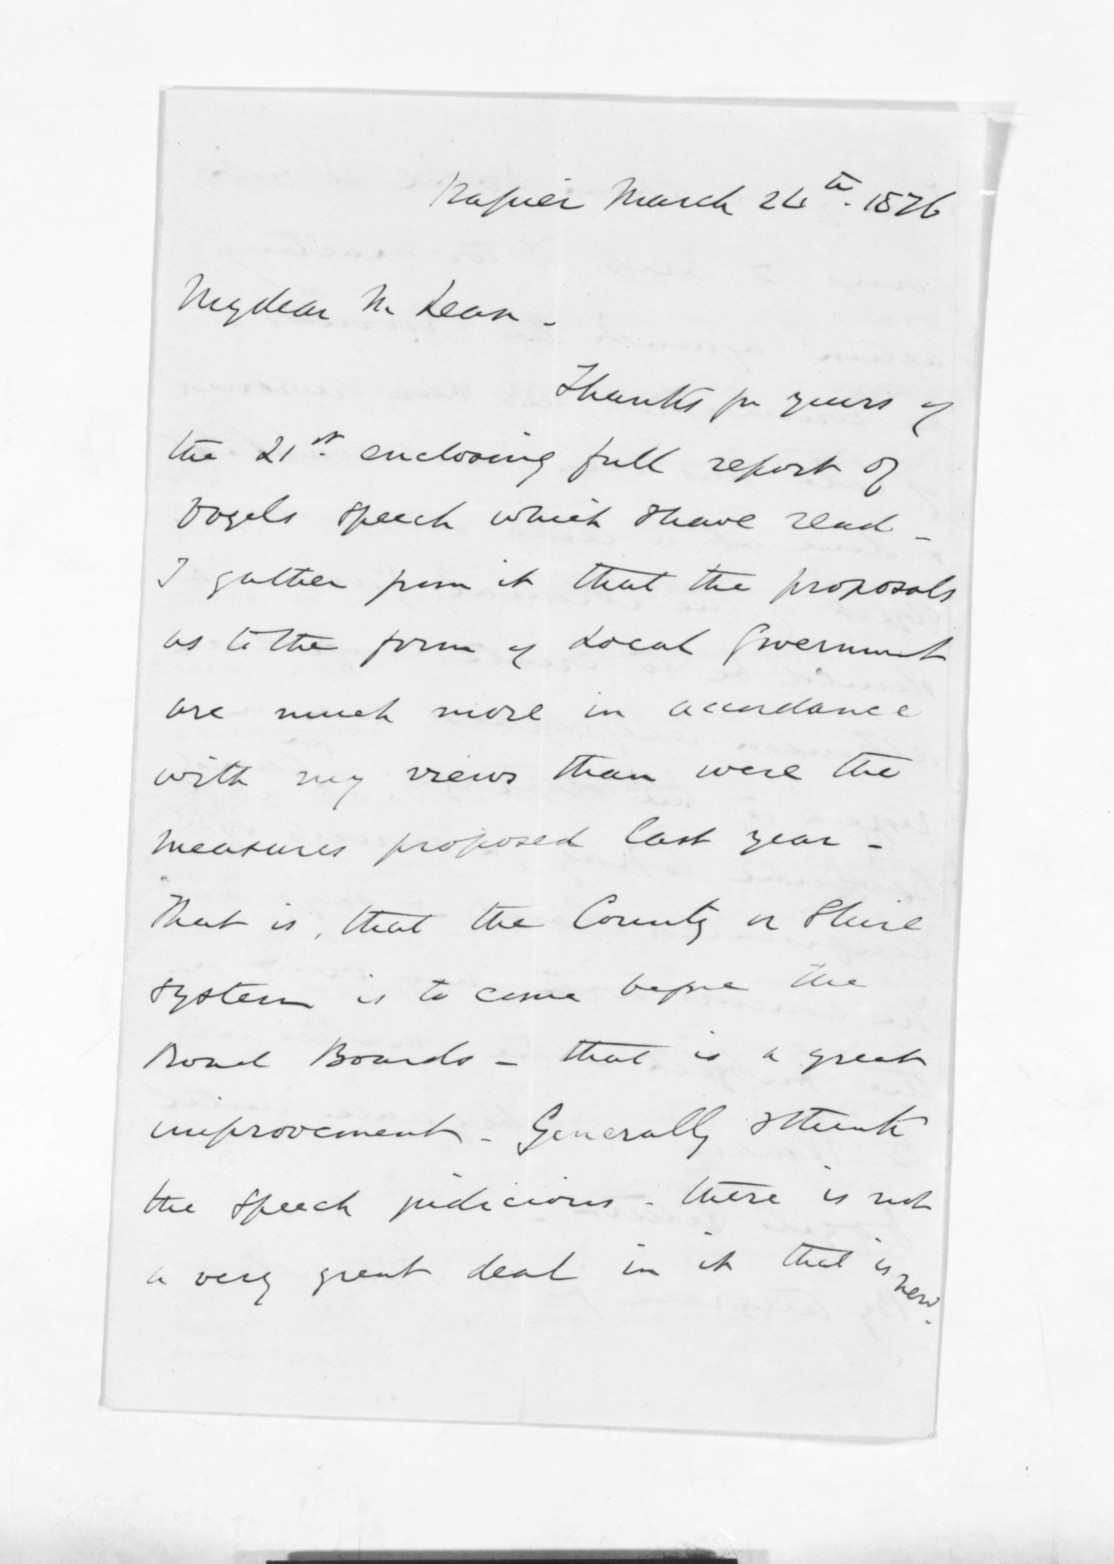 Napier March 24th. 1876
My dear McLean -
Thanks for yours of
the 21st. enclosing full report of
Vogels speech which I have read -
I gather from it that the proposals
as to the form of Local Government
are much more in accordance
with my views than were the
measures proposed last year -
That is, that the County or Shire
system is to come before the
Road Boards - that is a great
improvement - Generally I think
the speech judicious - there is not
a very great deal in it that is new.